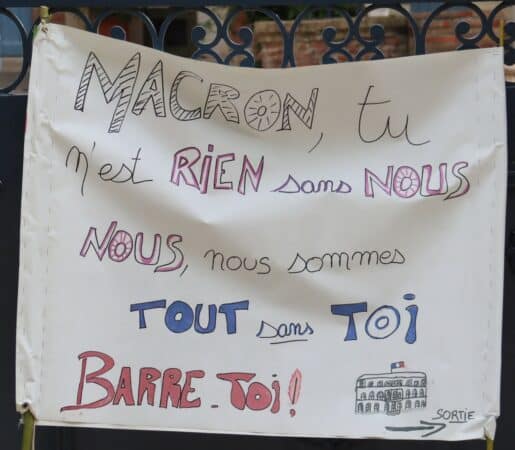 MACRON, tu
n'est RIEN sans NOUS
NOUS, nous sommes
TOUT sans TOi
BARRE-Toi!
SORTIE